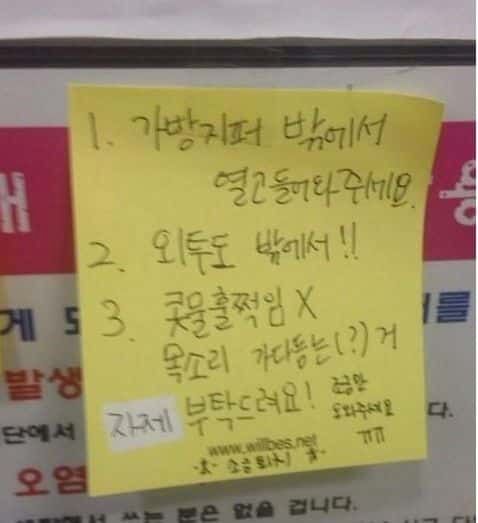 1. 가방지퍼 밖에서
열고들어와주세요.
2. 외투도 밖에서!!
3. 콧물훌쩍임 X
목소리 가다듬는(?) 거
자제 부탁드려요! 조금만
도와주세요
ㅠㅠ
www.willbes.net
소음퇴치
게
를
발생
단에서
다.
오염
쓰는 분은 없을 겁니다.